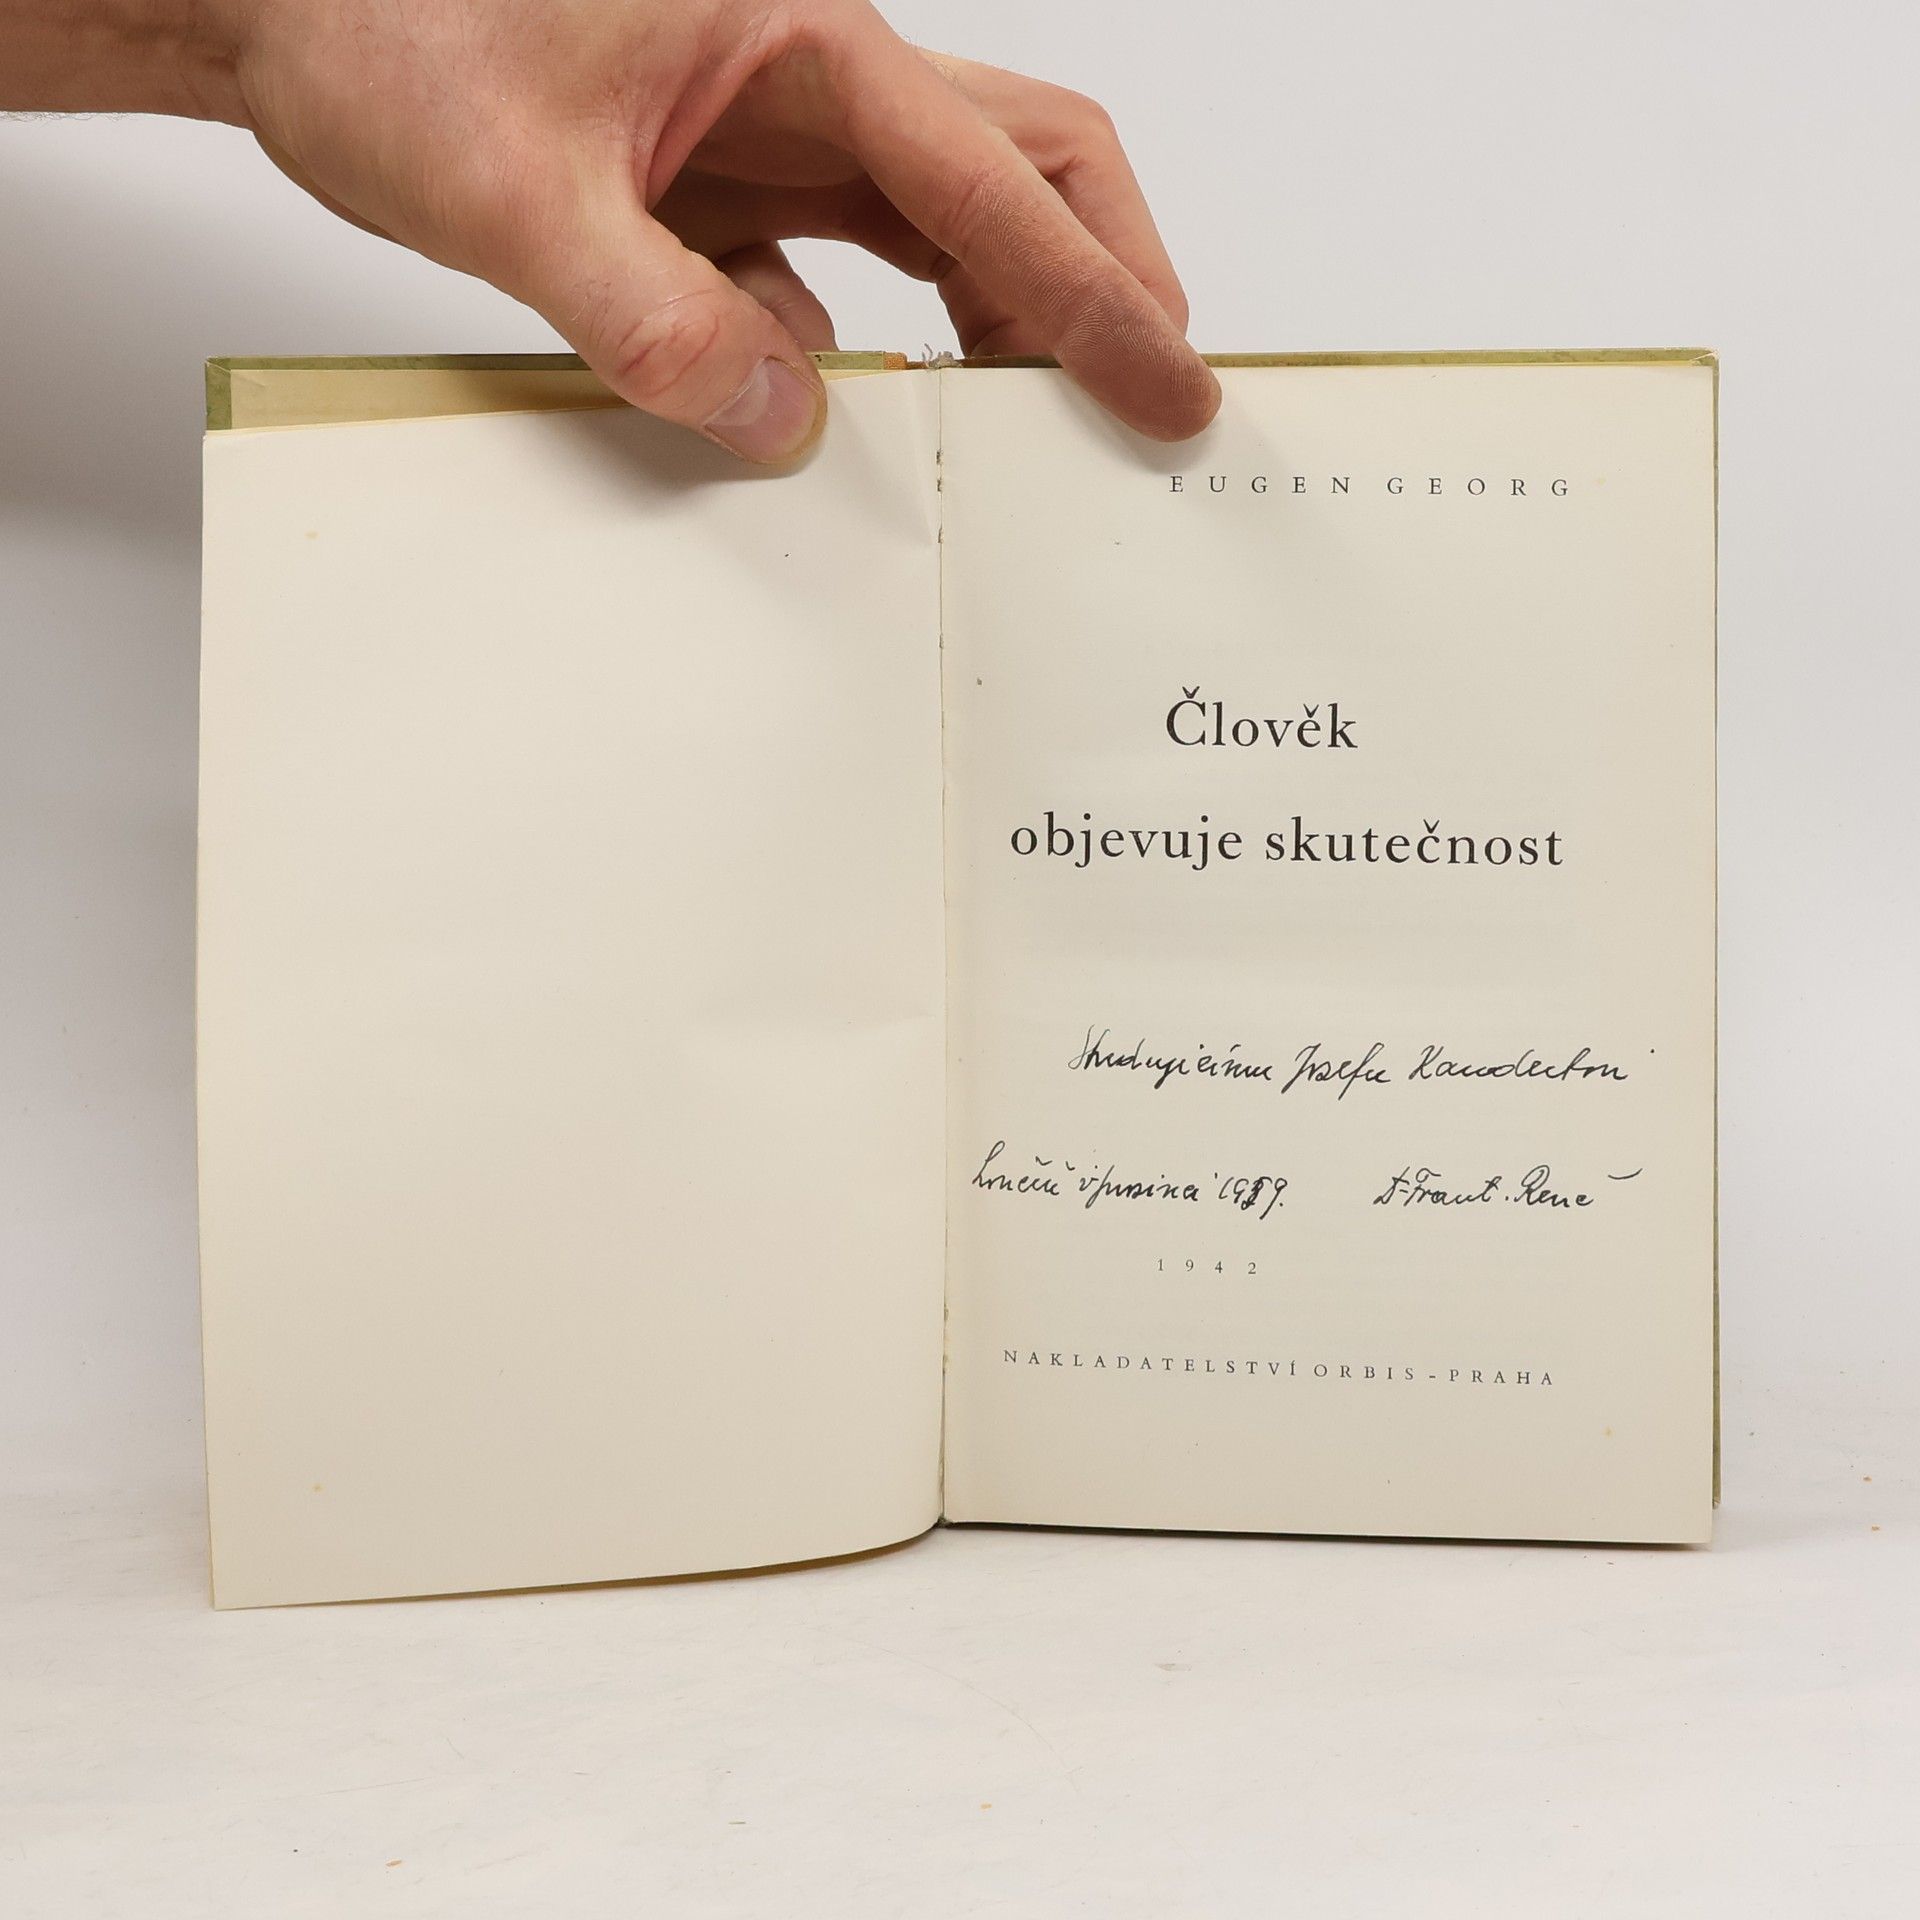 EUGEN GEORG
Člověk
objevuje skutečnost
Studujícímu Josefu
v prosinci 1959. Dr Frant. René
1942
NAKLADATELSTVÍ ORBIS - PRAHA